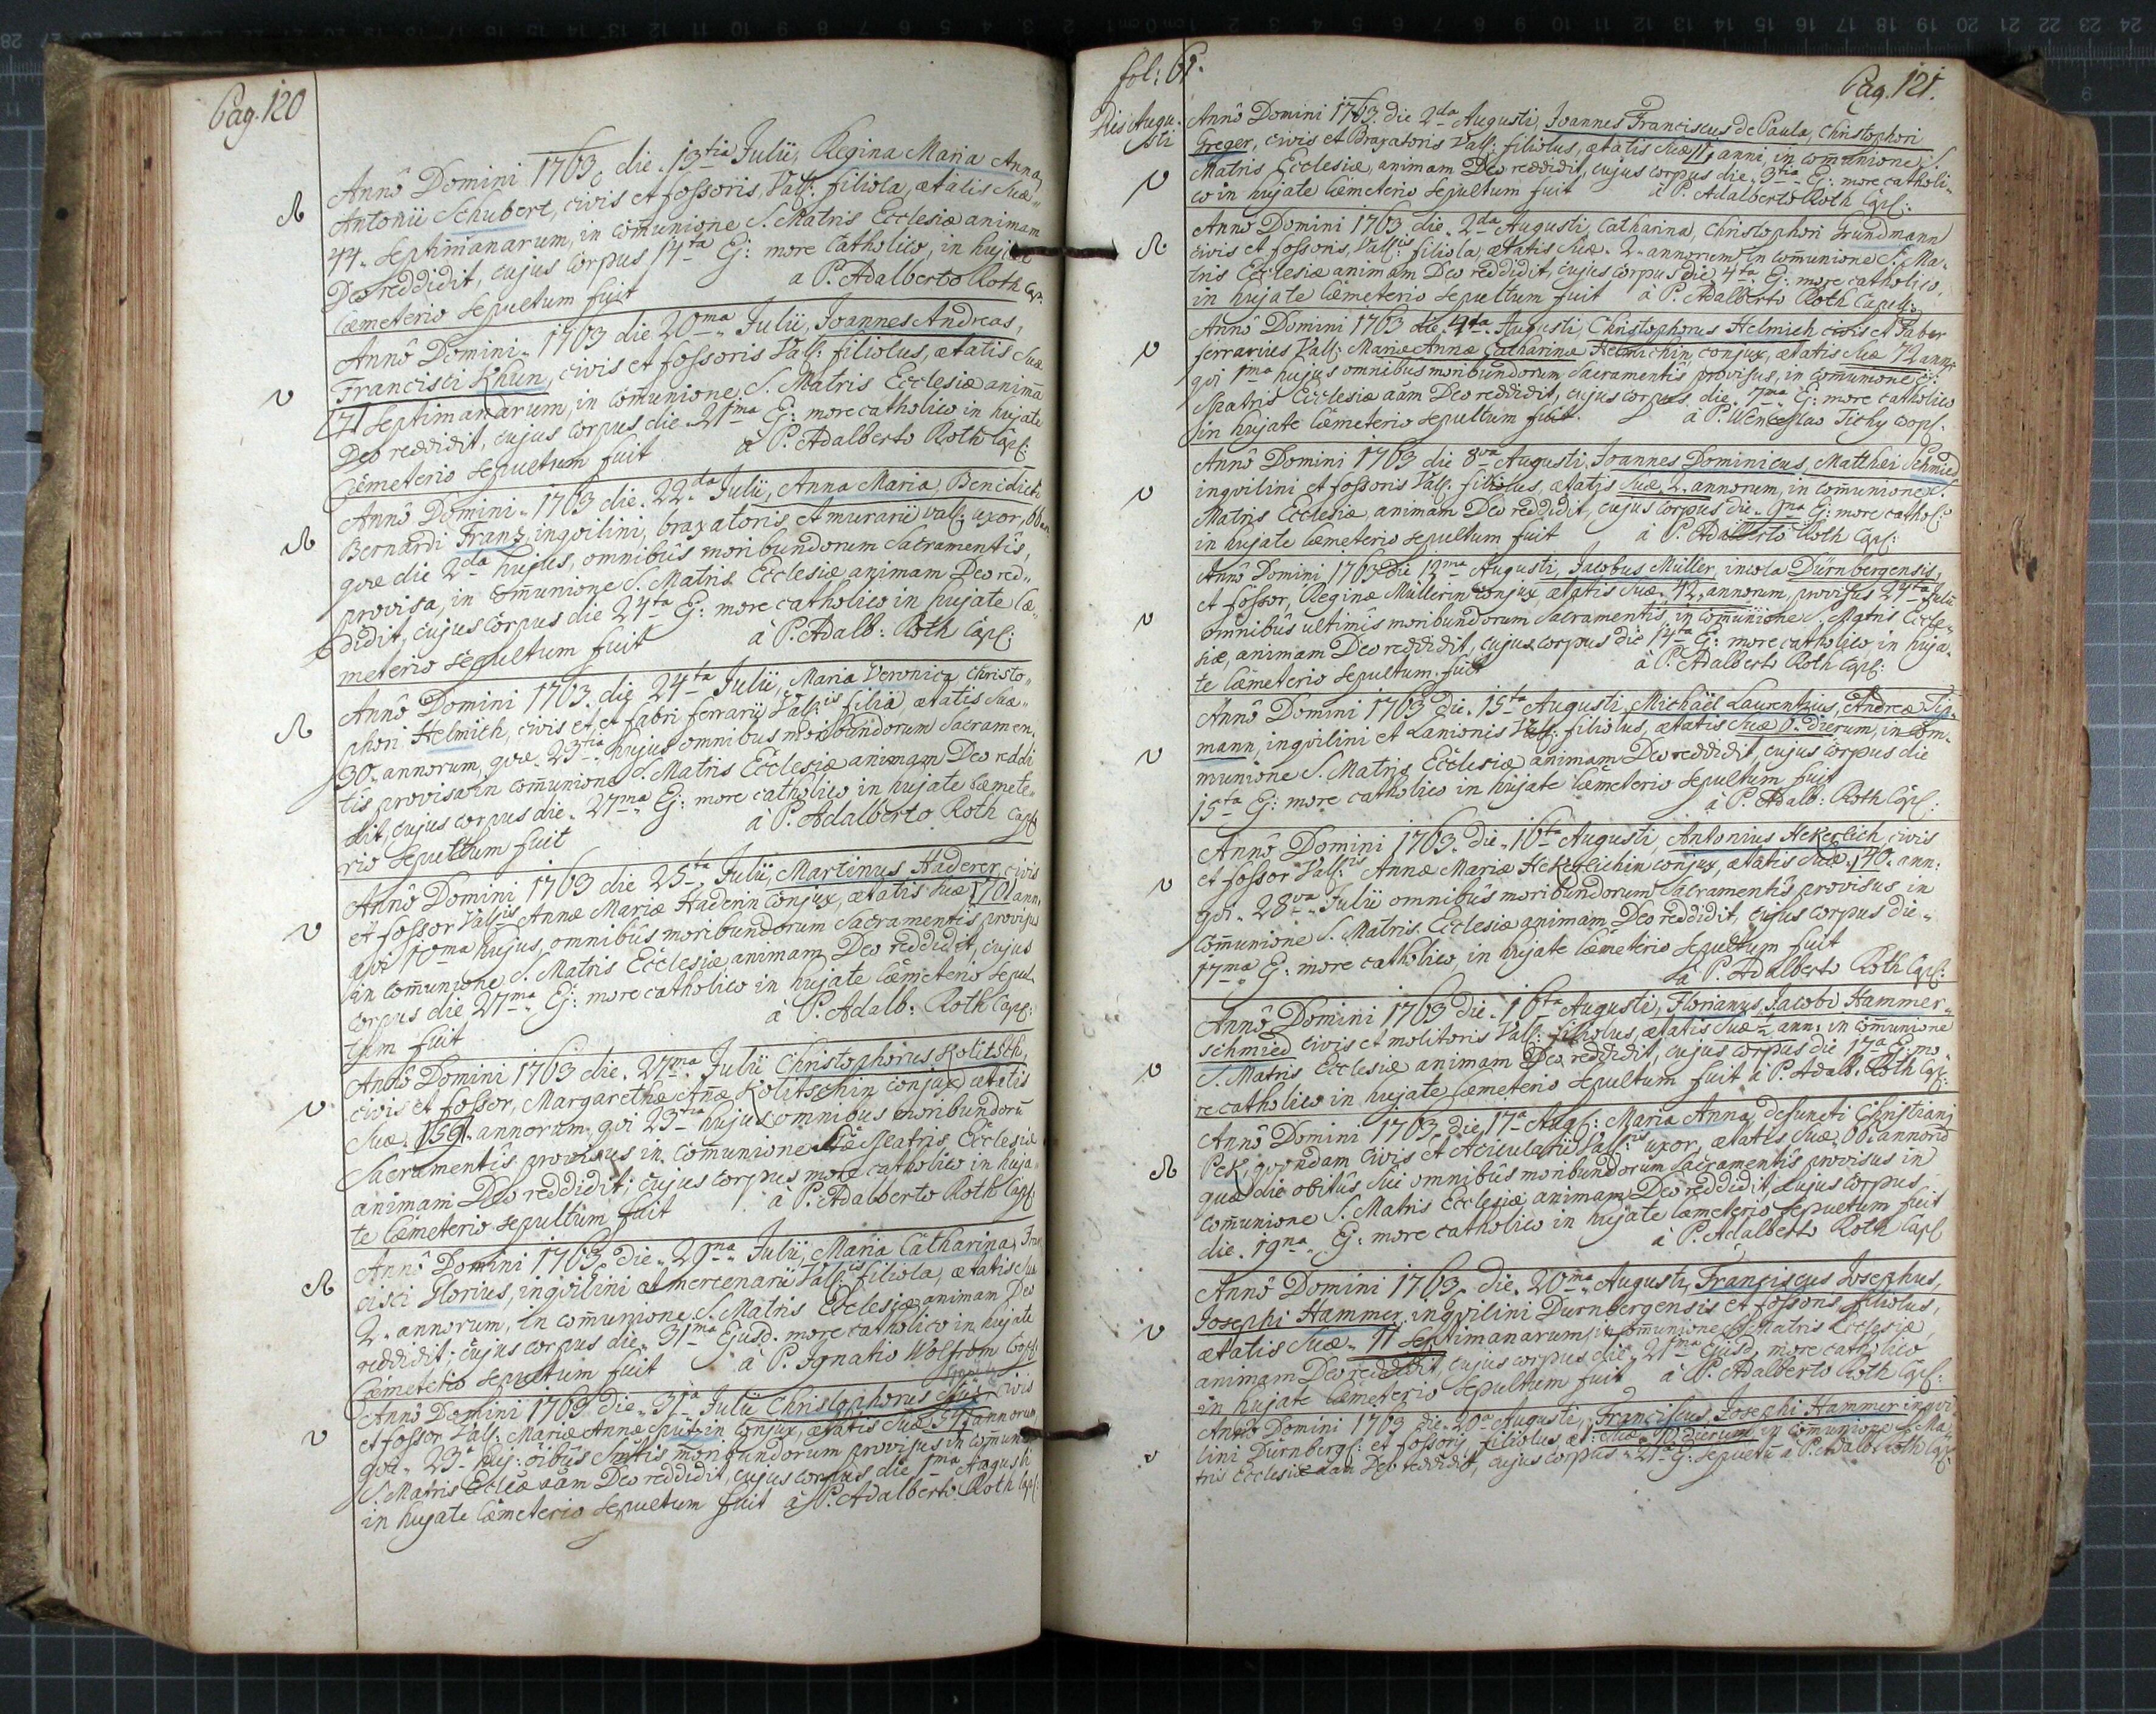 Pag. 120
Annô Domini 1763, die 13tia Julii, Regina Maria Anna,
Antonii Schubert, civis et fossoris, Vall: filiola, ætatis suæ
44 septimanarum, in com̄unione S. Matris Ecclesiæ animam
Deo reddidit, cujus corpus 14ta Ej: more catholico, in hujate
Cæmeterio sepultum fuit à P. Adalberto Roth Cap:
Annô Domini 1763 die 20ma Julii, Joannes Andreas,
Francisci Khün, civis et fossoris Vall: filiolus, ætatis suæ
septimanarum, in com̄unione S. Matris Ecclesiæ anim̄a
Deo reddidit, cujus corpus die 21ma Ej: more catholico in hujate
Cæmeterio sepultum fuit à P. Adalberto Roth Capl:
Annô Domini 1763 die 22da Julii, Anna Maria, Benedicti
Bernardi Franz, inqvilini, braxatoris et murarii vall: uxor, 66 an.
qvæ die 2da hujus, omnibus moribundorum Sacramentîs,
provisa, in com̄unione S. Matris Ecclesiæ animam Deo red-
didit, cujus corpus die 24ta Ej: more catholico in hujate Cæ-
meterio sepultum fuit à P. Adalb: Roth Capl:
Annô Domini 1763. die 24ta Julii, Maria Veronica, Christo-
phori Helmich, civis et, et fabri ferrarii Vall:is filia, ætatis suæ
30 annorum, qvæ 23tia hujus omnibus moribundorum Sacramen-
tîs provisa in com̄unione S. Matris Ecclesiæ animam Deo reddi
dit, cujus corpus die 27ma Ej: more catholico in hujate Cæmete-
rio sepultum fuit à P. Adalberto Roth Capl:
Annô Domini 1763 die 25ta Julii, Martinus Haderer, civis
et fossor Vallis Annæ Mariæ Haderin Conjux, ætatis suæ 70 ann.
qvi 10ma hujus, omnibûs moribundorum Sacramentîs provisus
in com̄unione S. Matris Ecclesiæ animam Deo reddidit, cujus
corpus die 27ma Ej: more catholico in hujate Cæmeterio sepul-
tum fuit à P. Adalb: Roth Capl:
Annô Domini 1763 die 27ma Julii Christophorus Kolitsch,
civis et fossor, Margarethæ An̄æ Kolitschin conjux, ætatis
Suæ 59 annorum, qvi 23tia hujus omnibus moribundorū
Sacramentîs provisus in com̄unione Stæ Matris Ecclesiæ
animam Deo reddidit, cujus corpus more catholico in huja-
te Cæmeterio sepultum fuit à P. Adalberto Roth Capl:
Annô Domini 1763, die 29na Julii, Maria Catharina, Fran
cisci Glorius, inqvilini et mercenarii Vall:is filiola, ætatis suæ
2 annorum, in com̄unione S. Matris Ecclesiæ animam Deo
reddidit, cujus corpus die 31ma Ejusd. more catholico in hujate
Cæmeterio sepultum fuit à P. Ignatio Wolfrom Capl:
Annô Domini 1763 die 31a Julii Christophorus civis
et fossor Vall: Mariæ Annæ conjux, ætatis suæ annorum,
qvi 23a huj: oībus Sm̄tis moribundorum provisus in com̄unio
S. Matris Eccl̄æ aām Deo reddidit, cujus corpus die 1ma Augusti
in hujate Cæmeterio sepultum fuit à P. Adalberto Roth Capl:
fol: 61.
Pag. 121.
Dis Augu-
sti
Annô Domini 1763. die 2da Augusti, Joannes Franciscus de Paula, Christophori
Greger, civis et Braxatoris Vall: filiolus, ætatis suæ 1 anni, in com̄unione S.
Matris Ecclesiæ, animam Deo reddidit, cujus corpus die 3tia Ej: more catholi-
co in hujate Cæmeterio sepultum fuit à P. Adalberto Roth Capl:
Anno Domini 1763 die 2da Augusti, Catharina, Christophori Grundmann
civis et fossoris, Vallis: filiola, ætatis suæ 2 annorum, in com̄unione S. Ma-
tris Ecclesiæ animam Deo reddidit, cujus corpus die 4ta Ej: more catholico,
in hujate Cæmeterio sepultum fuit à P. Adalberto Roth Capell:
Annô Domini 1763 die 4ta Augusti, Christophorus Helmich civis et Faber
ferrarius Vall: Mariæ Annæ Catharinæ Helmichin conjux, ætatis suæ 72 annor
qvi 1ma hujus omnibus moribundorum Sacramentîs provisus, in com̄unione S:
Matris Ecclesiæ aām Deo reddidit, cujus corpus die 7ma Ej: more catholico
in hujate Cæmeterio sepultum fuit. à P. Wenceslao Tichy Capl.
Annô Domini 1763 die 8va Augusti, Joannes Dominicus, Matthei Schmied
inqvilini et fossoris Vall: filiolus, ætatis suæ 2 annorum, in com̄unione S.
Matris Ecclesiæ, animam Deo reddidit, cujus corpus die 9na Ej: more cathol:o
in hujate Cæmeterio sepultum fuit à P. Adalberto Roth Capl:
Annô Domini 1763 die 12ma Augusti, Jacobus Müller, incola Dürnbergensis,
et fossor, Reginæ Müllerin conjux, ætatis suæ 42 annorum, provisus 27ta Julii
omnibûs ultimîs moribundorum Sacramentîs, in com̄unione S. Matris Eccle-
siæ, animam Deo reddidit, cujus corpus die 14ta Ej: more catholico, in huja-
te Cæmeterio sepultum fuit à P. Adalberto Roth Capl:
Annô Domini 1763 die 15ta Augusti, Michaël Laurentius, Andreæ Tip-
mann, inqvilini et Lanionis Vall: filiolus, ætatis suæ dierum, in com-
munione S. Matris Ecclesiæ animam Deo reddidit, cujus corpus die
15ta Ej: more catholico in hujate Cæmeterio sepultum fuit
à P. Adalb: Roth Capl:
Annô Domini 1763. die 16ta Augusti, Antonius Hekerlich, civis
et fossor Vall:is Annæ Mariæ Hekerlichin conjux, ætatis suæ 40 ann:
qvi 28va Julii omnibûs moribundorum Sacramentîs provisus in
com̄unione S. Matris Ecclesiæ animam Deo reddidit, cujus corpus die
17ma Ej: more catholico, in hujate Cæmeterio sepultum fuit
à P. Adalberto Roth Capl:
Annô Domini 1763 die 16ta Augusti, Florianus, Jacobi Hammer-
schmied civis et molitoris Vall: filiolus, ætatis suæ ann: in com̄unione
S. Matris Ecclesiæ animam Deo reddidit, cujus corpus die 17a Ej: mo-
re catholico in hujate Cæmeterio sepultum fuit à P. Adalb. Roth Capl:
Annô Domini 1763, die 17a Aug: Maria Anna, defuncti Christiani
Pek, qvondam civis et Acicularii Vall:is uxor, ætatis suæ annorū
quæ die obitûs sui omnibûs moribundorum Sacramentîs provisus in
com̄unione S. Matris Ecclesiæ animam Deo reddidit, cujus corpus
die 19na Ej: more catholico in hujate Cæmeterio sepultum fuit
à P. Adalberto Roth Capl
Annô Domini 1763. die 20ma Augusti, Franciscus Josephus,
Josephi Hammer, inqvilini Dürnbergensis et fossoris, filiolus,
ætatis suæ 11 septimanarum, in com̄unione S. Matris Ecclesiæ,
animam Deo reddidit, cujus corpus die 21ma Ejusd. more catholico
in hujate Cæmeterio sepultum fuit à P. Adalberto Roth Capl:
Annô Domini 1763 die 20a Augusti, Franciscus, Josephi Hammer inqvi
lini Dürnberg: et fossoris, filiolus æt: suæ dierum, in com̄unione S. Ma-
tris Ecclesiæ aām Deo reddidit, cujus corpus 21a Ej: sepultū à P. Adalb. Roth Capl: